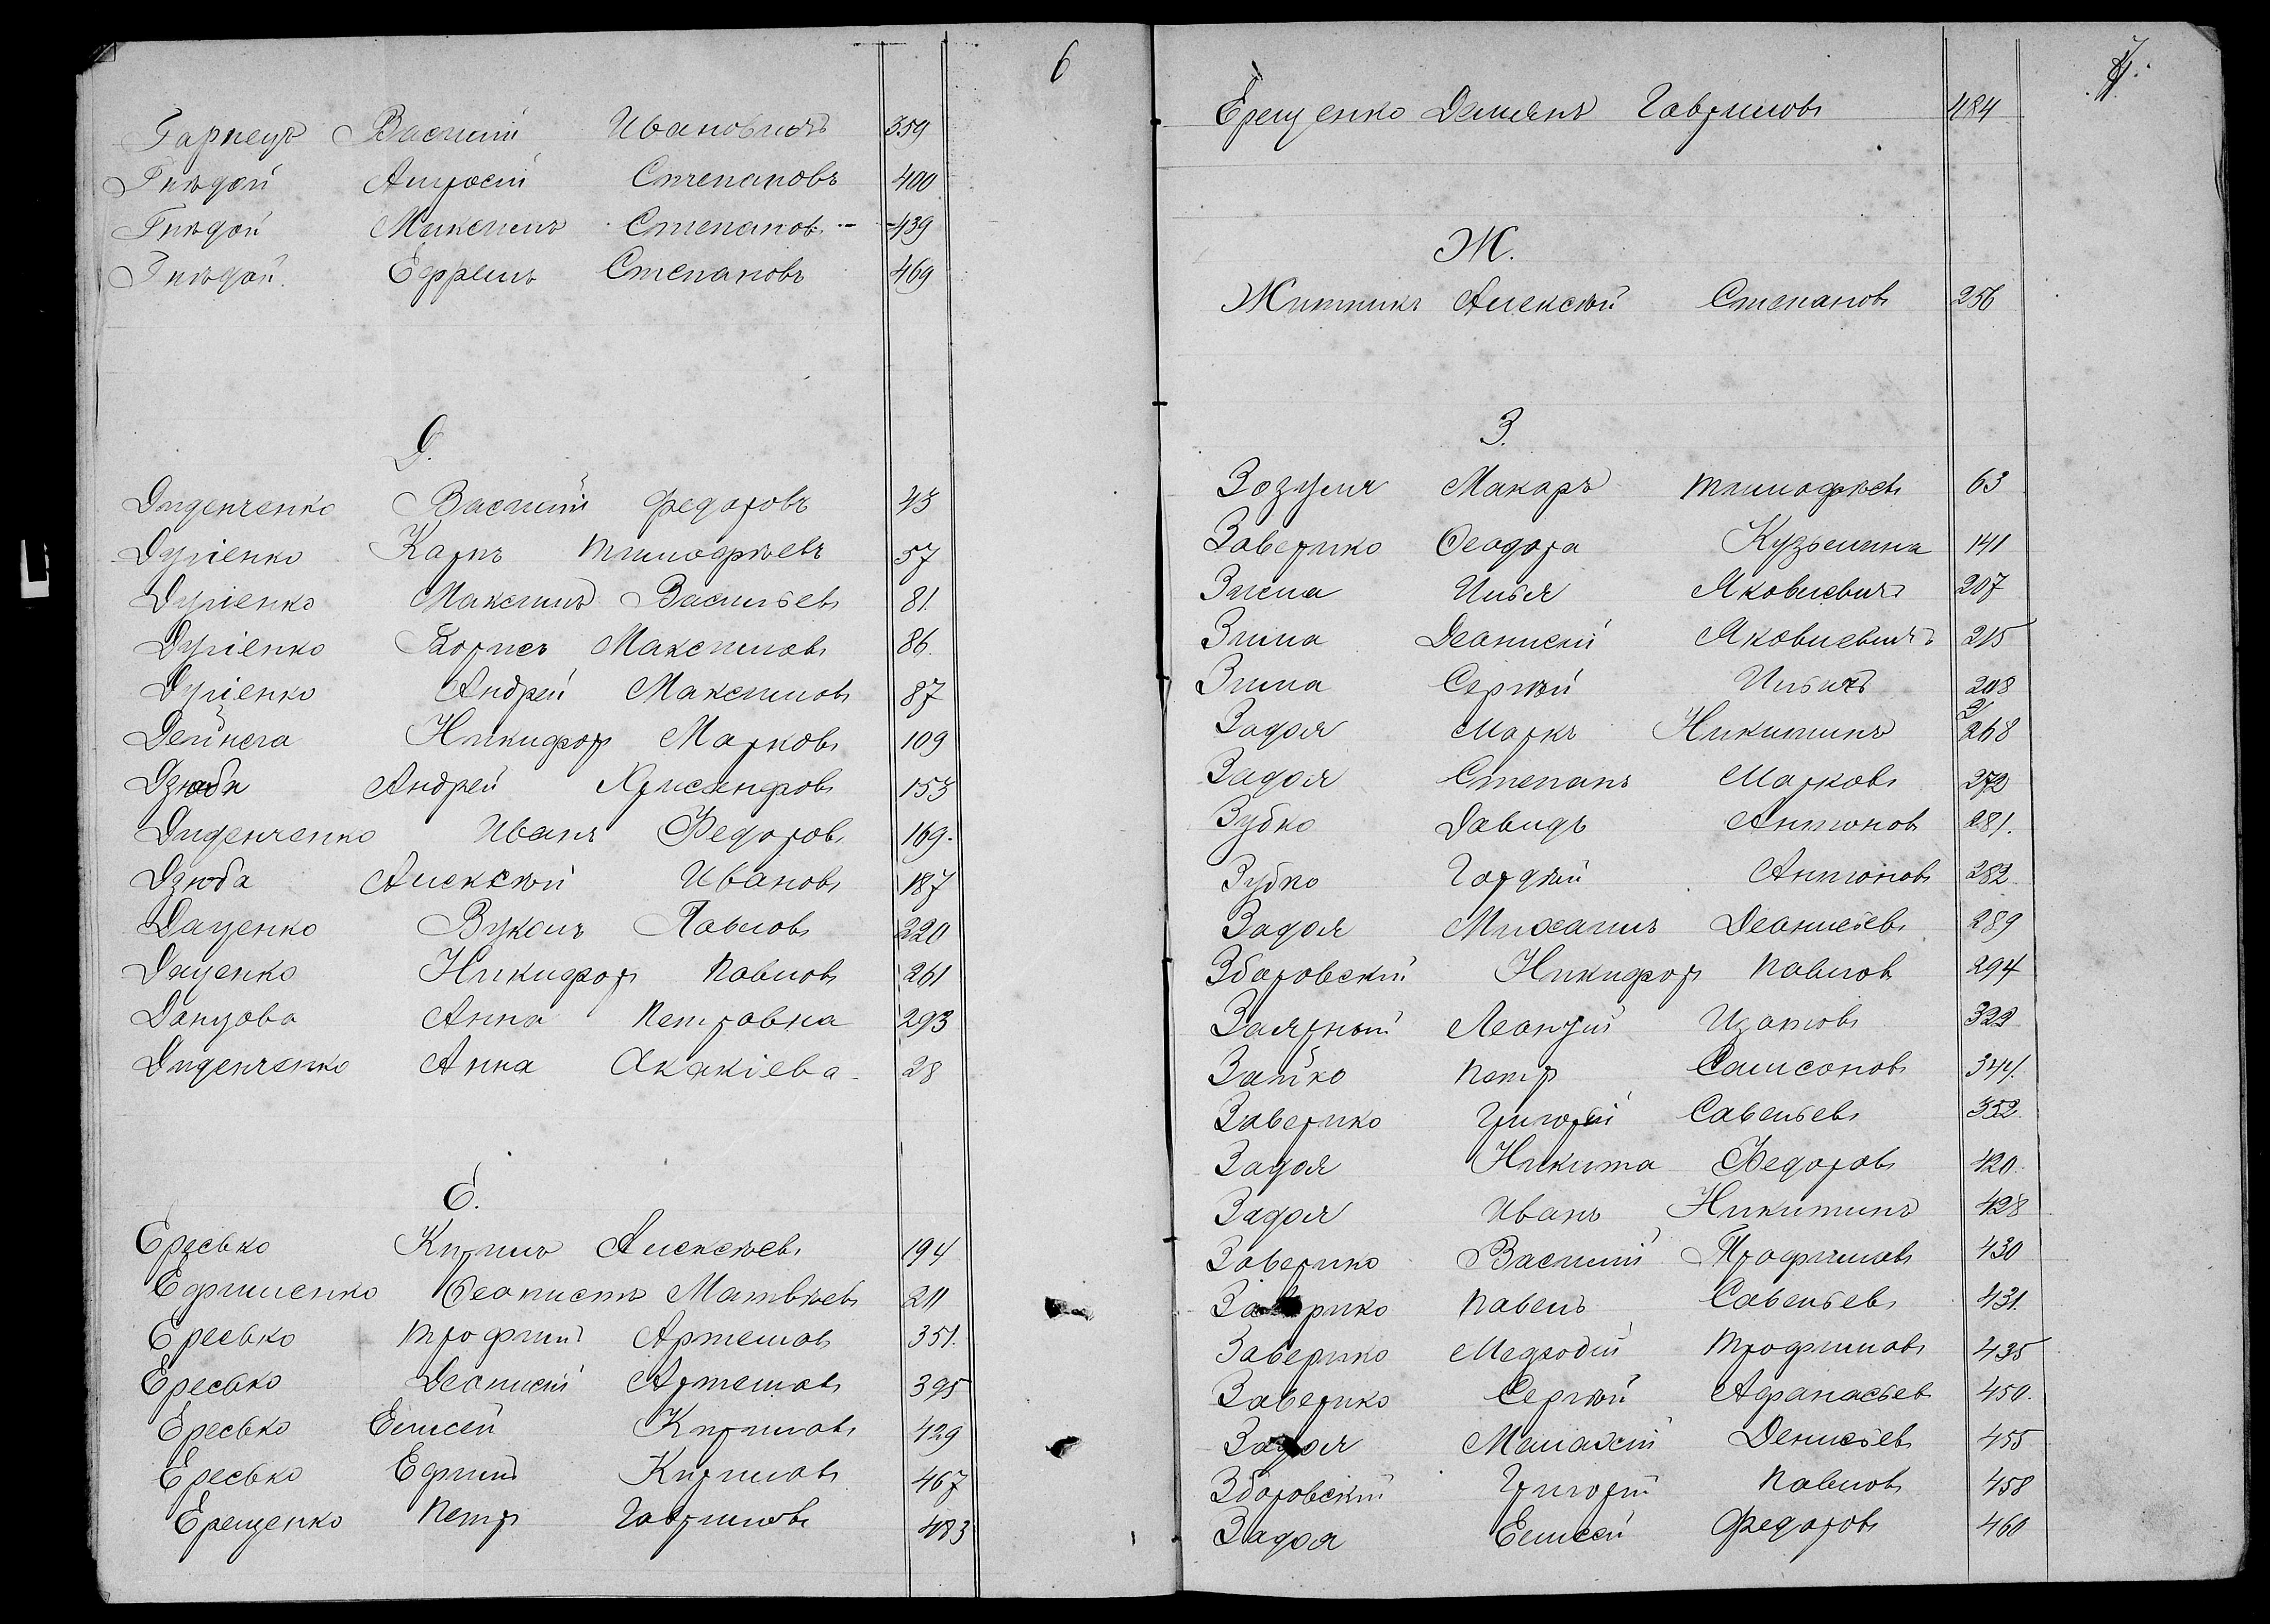 6
Гарнець Василій Ивановичъ 359
Гнѣдой Амвросій Степановъ 400
Гнѣдой Максимъ Степановъ 439
Гнѣдой Ефремъ Степановъ 469
Д.
Диденченко Василій Федоровъ 43
Дуріенко Карпъ Тимофѣевъ 57
Дуріенко Максимъ Васильевъ 81.
Дуріенко Борисъ Максимовъ 86.
Дуріенко Андрей Максимовъ 87
Дейнега Никифоръ Марковъ 109
Дзюба Андрей Хрисанфовъ 153
Диденченко Иванъ Федоровъ 169.
Дзюба Алексѣй Ивановъ 187
Даценко Вуколъ Павловъ 220
Даценко Никифоръ Павловъ 261
Данцова Анна Петровна 293
Диденченко Анна Акакіева 28
Е.
Ересько Кирилъ Алексѣевъ 194
Ефименко Феопистъ Матвѣевъ 211
Ересько Трофимъ Артемовъ 351.
Ересько Деонисій Артемовъ 395
Ересько Елисей Кириловъ 429
Ересько Ефимъ Кириловъ 467
Ерещенко Петръ Гавриловъ 483
7.
Ерещенко Демьянъ Гавриловъ 484
Ж.
Житникъ Алексѣй Степановъ 256
З.
Зозуля Макаръ Тимофѣевъ 63
Заверико Феодора Кузьмина 141
Зима Илья Яковлевичъ 207
Зима Деонисій Яковлевичъ 215
Зима Сергѣй Ильичъ 208
Задоя Маркъ Никитинъ 268
Задоя Степанъ Марковъ 272
Зубко Давидъ Антоновъ 281.
Зубко Гордѣй Антоновъ 282
Задоя Михаилъ Деонисьевъ 289
Зборовскій Никифоръ Павловъ 294
Заярный Леонтій Изотовъ 322
Зайко Петръ Самсоновъ 344.
Заверико Григорій Савельевъ 352
Задоя Никита Федоровъ 420.
Задоя Иванъ Никитинъ 428
Заверико Василій Трофимовъ 430
Заверико Павелъ Савельевъ 431.
Заверико Мефодій Трофимовъ 435
Заверико Сергѣй Афанасьевъ 450.
Задоя Малахій Денисьевъ 455
Зборовскій Григорій Павловъ 458
Задоя Елисей Федоровъ 460